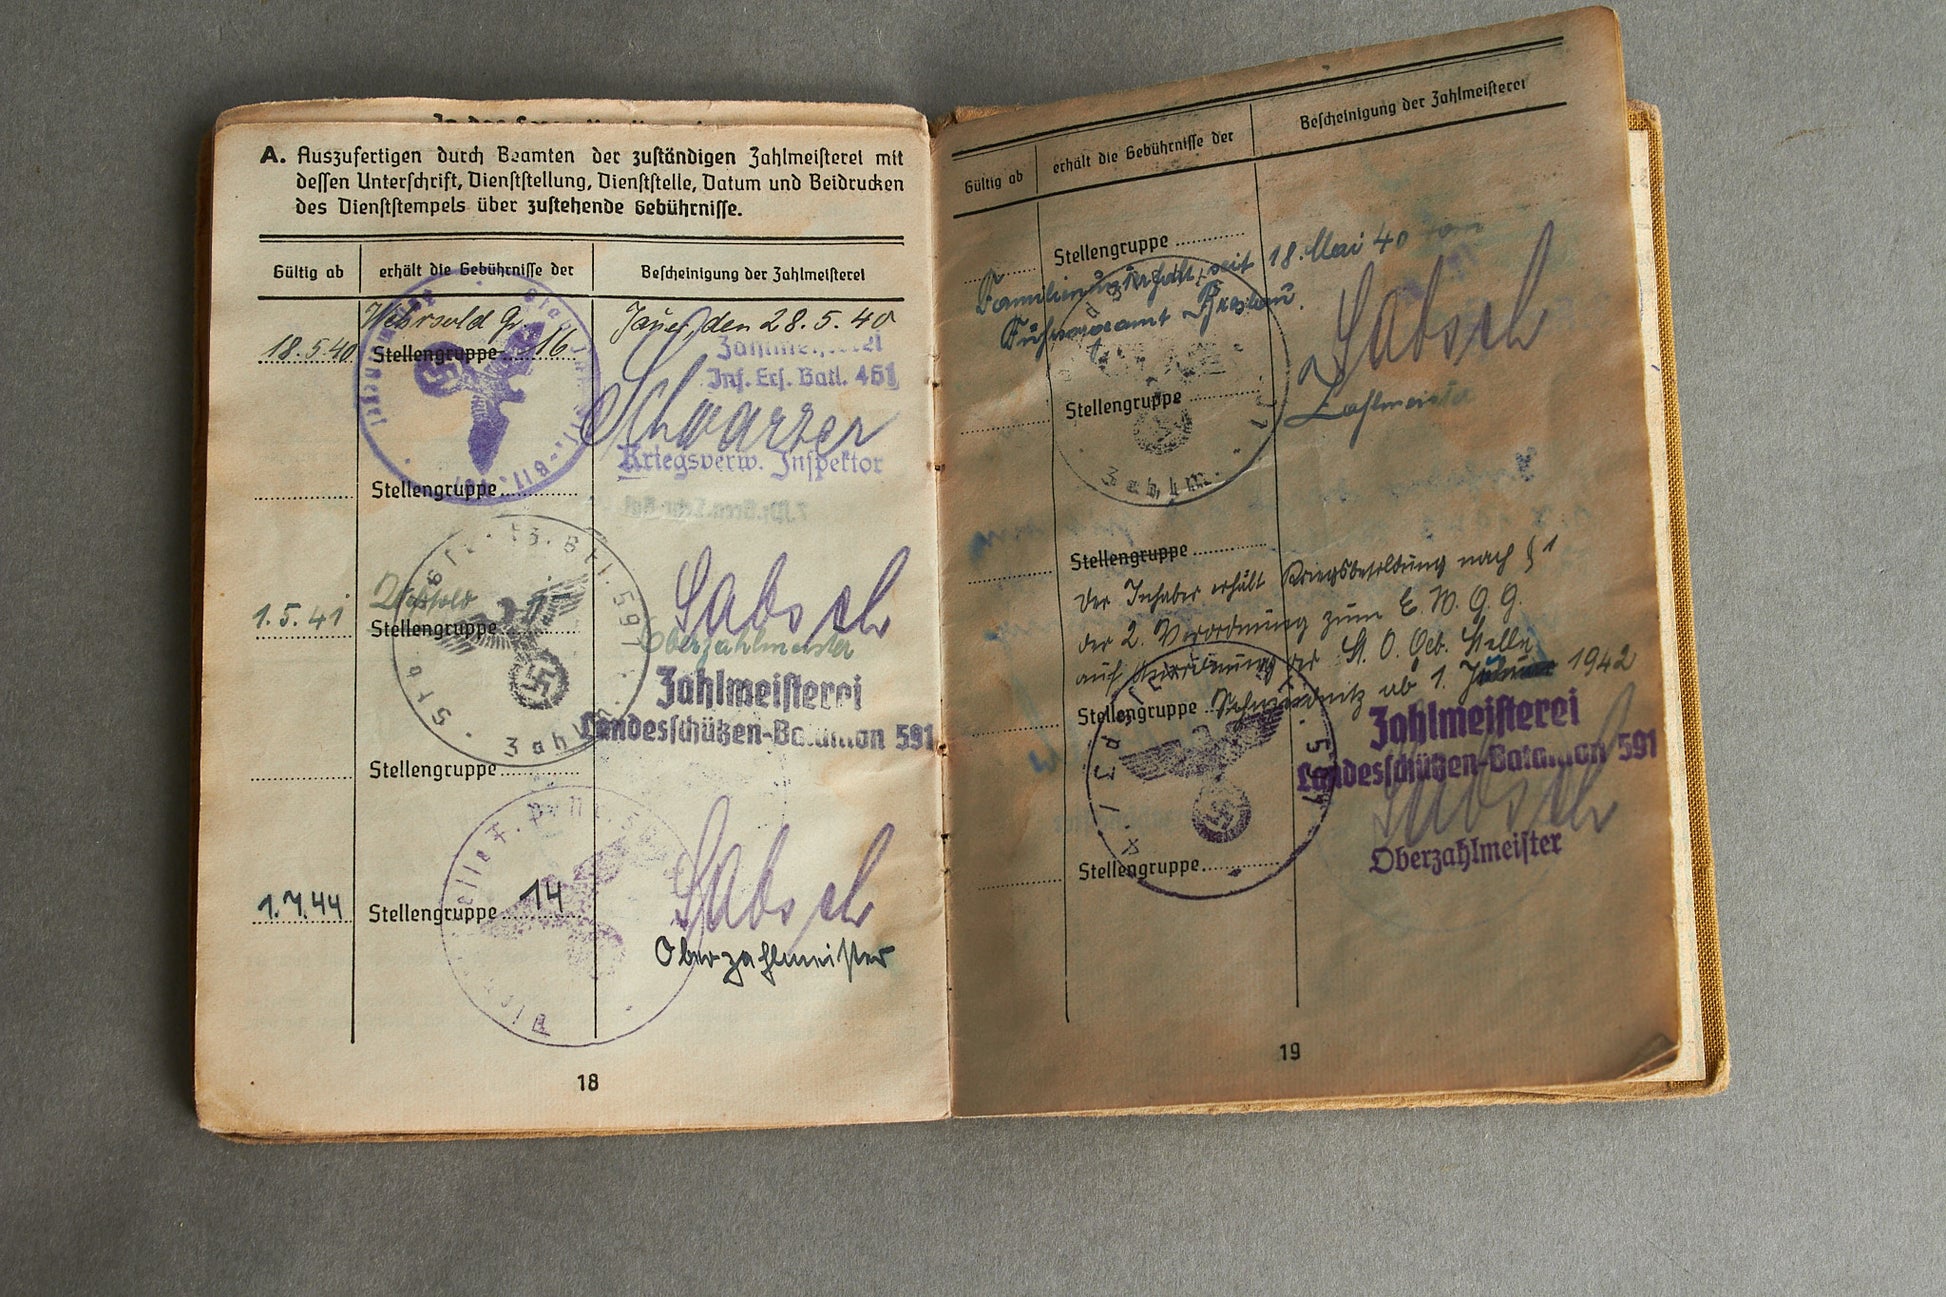 A. Auszufertigen durch Beamten der zuständigen Zahlmeisterei mit
dessen Unterschrift, Dienststellung, Dienststelle, Datum und Beidrucken
des Dienststempels über zustehende Gebührnisse.
Gültig ab
erhält die Gebührnisse der
Bescheinigung der Zahlmeisterei
Wehrsold Gr.
Jauer, den 28.5.40
18.5.40
Stellengruppe 16
Inf. Ers. Batl. 461
Schwarzer
Kriegsverw. Inspektor
Stellengruppe
Labsch
1.5.41
Stellengruppe
Oberzahlmeister
Zahlmeisterei
Landesschützen-Bataillon 591
Stellengruppe
Labsch
1.7.44
Stellengruppe 14
Oberzahlmeister
18
Gültig ab
erhält die Gebührnisse der
Bescheinigung der Zahlmeisterei
Stellengruppe
Familienunterhalt seit 18. Mai 40 vom
Fürsorgeamt Breslau.
Labsch
Stellengruppe
Zahlmeister
Zahlm.
Stellengruppe
Der Inhaber erhält Kriegsbesoldung nach § 1
der 2. Verordnung zum E. W. G. G.
auf Anordnung der St. O. Geb. Stelle
Stellengruppe
Schweidnitz ab 1. 1942
Zahlmeisterei
Landesschützen-Bataillon 591
Labsch
Oberzahlmeister
Stellengruppe
19